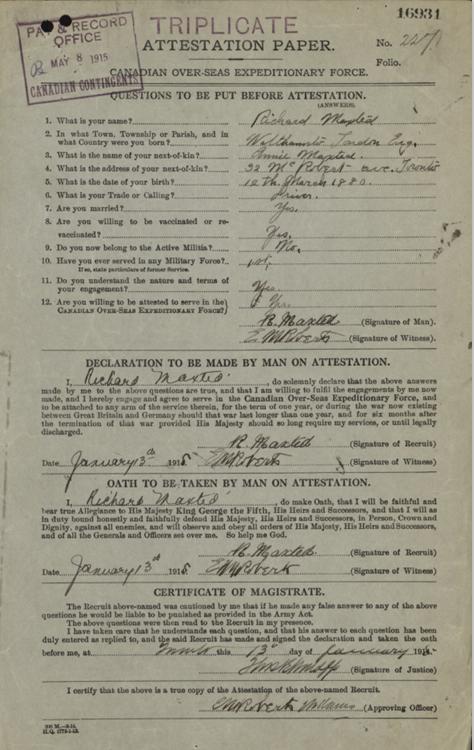 16931
TRIPLICATE
PAY & RECORD
OFFICE
MAY 8 1915
CANADIAN CONTINGENTS
ATTESTATION PAPER.
No.
Folio.
CANADIAN OVER-SEAS EXPEDITIONARY FORCE.
QUESTIONS TO BE PUT BEFORE ATTESTATION.
(ANSWERS)
1. What is your name? Richard Maxted
2. In what Town, Township or Parish, and in
what Country were you born? London Eng.
3. What is the name of your next-of-kin? Annie Maxted.
4. What is the address of your next-of-kin? 32 McRobert ave. Toronto
5. What is the date of your birth? 12th March 1880.
6. What is your Trade or Calling? Driver.
7. Are you married? Yes.
8. Are you willing to be vaccinated or re-
vaccinated? Yes.
9. Do you now belong to the Active Militia? No.
10. Have you ever served in any Military Force?
If so, state particulars of former Service.
11. Do you understand the nature and terms of
your engagement? Yes
12. Are you willing to be attested to serve in the
CANADIAN OVER-SEAS EXPEDITIONARY FORCE? Yes
R. Maxted (Signature of Man).
(Signature of Witness).
DECLARATION TO BE MADE BY MAN ON ATTESTATION.
I, Richard Maxted, do solemnly declare that the above answers
made by me to the above questions are true, and that I am willing to fulfil the engagements by me now
made, and I hereby engage and agree to serve in the Canadian Over-Seas Expeditionary Force, and
to be attached to any arm of the service therein, for the term of one year, or during the war now existing
between Great Britain and Germany should that war last longer than one year, and for six months after
the termination of that war provided His Majesty should so long require my services, or until legally
discharged.
R. Maxted (Signature of Recruit)
Date January 13th 1915 (Signature of Witness)
OATH TO BE TAKEN BY MAN ON ATTESTATION.
I, Richard Maxted, do make Oath, that I will be faithful and
bear true Allegiance to His Majesty King George the Fifth, His Heirs and Successors, and that I will as
in duty bound honestly and faithfully defend His Majesty, His Heirs and Successors, in Person, Crown and
Dignity, against all enemies, and will observe and obey all orders of His Majesty, His Heirs and Successors,
and of all the Generals and Officers set over me. So help me God.
R. Maxted (Signature of Recruit)
Date January 13th 1915 (Signature of Witness)
CERTIFICATE OF MAGISTRATE.
The Recruit above-named was cautioned by me that if he made any false answer to any of the above
questions he would be liable to be punished as provided in the Army Act.
The above questions were then read to the Recruit in my presence.
I have taken care that he understands each question, and that his answer to each question has been
duly entered as replied to, and the said Recruit has made and signed the declaration and taken the oath
before me, at this 13th day of January 191
(Signature of Justice)
I certify that the above is a true copy of the Attestation of the above-named Recruit.
(Approving Officer)